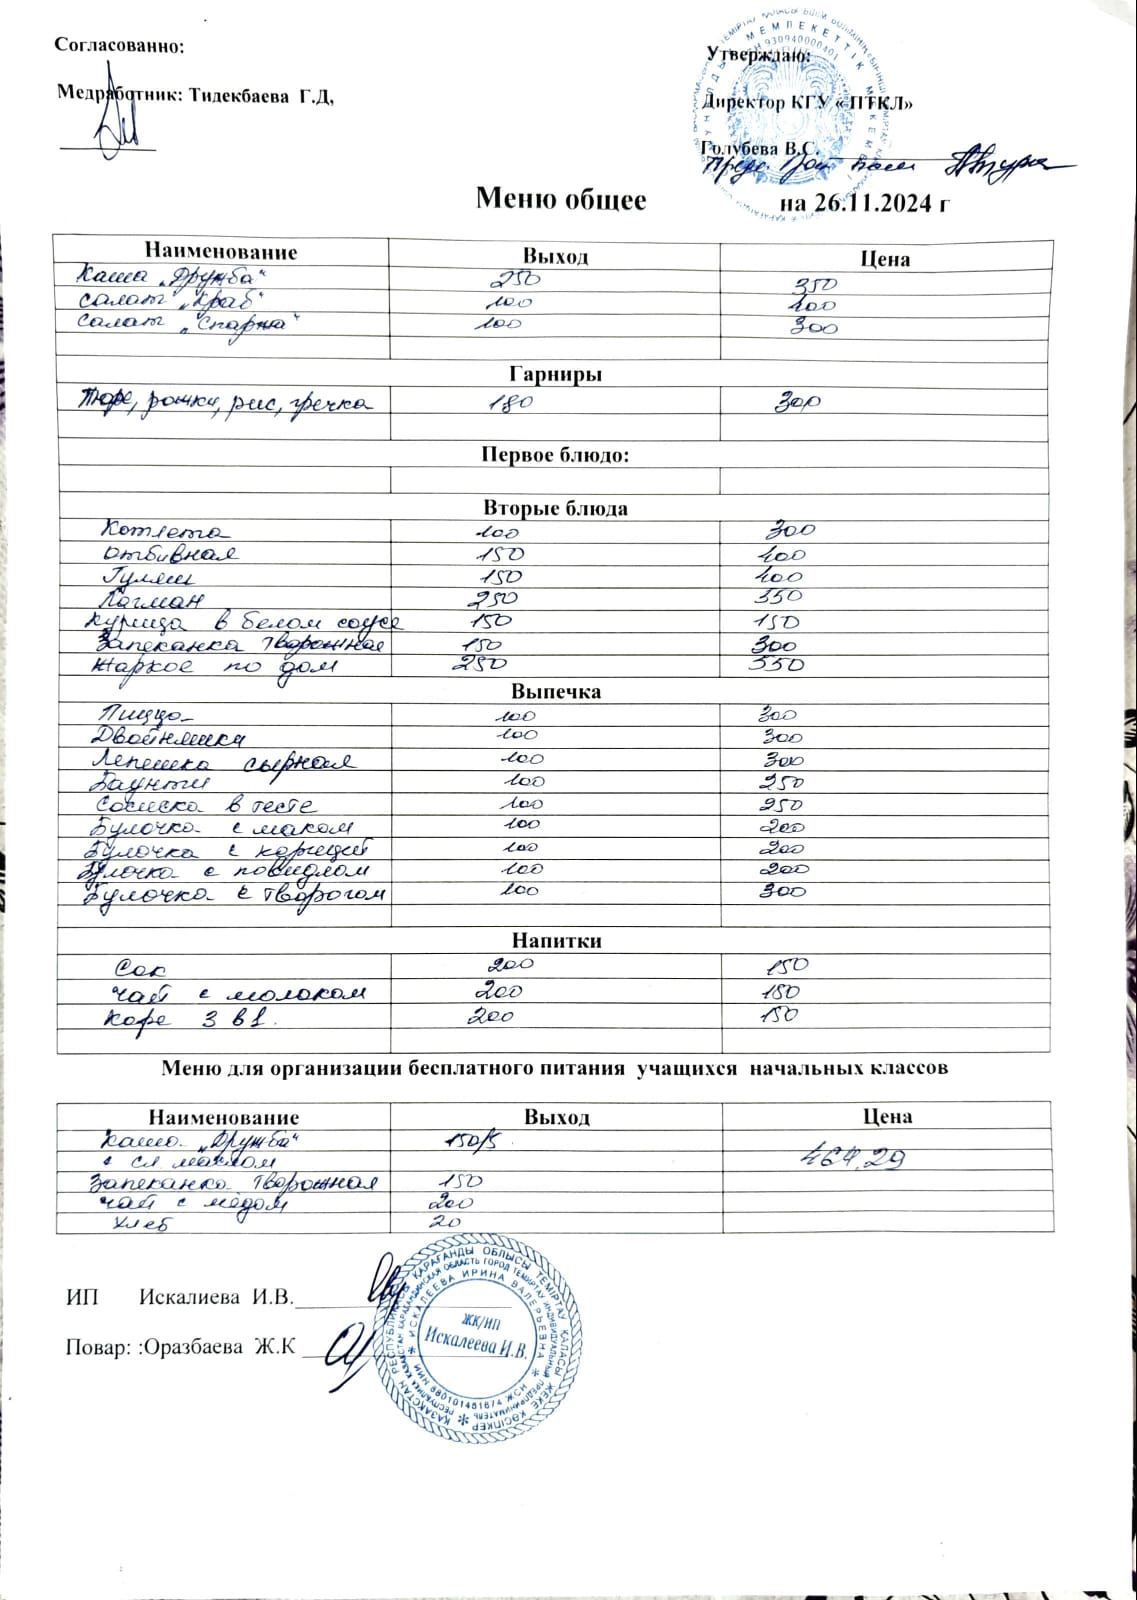 Согласованно:
Утверждаю:
Медработник: Тидекбаева Г.Д,
Директор КГУ « ПТКЛ»
Голубева В.С.
Меню общее на 26.11.2024 г
Наименование Выход Цена
Каша „Дружба“ 250 350
салат „Краб“ 100 400
салат „Спаржа“ 100 300
Гарниры
Пюре, рожки, рис, гречка 180 300
Первое блюдо:
Вторые блюда
Котлета 100 300
отбивная 150 400
Гуляш 150 400
Лагман 250 550
Курица в белом соусе 150 150
Запеканка творожная 150 300
Жаркое по дом 250 550
Выпечка
Пицца 100 300
Двойняшки 100 300
Лепешка сырная 100 300
Баунти 100 250
Сосиска в тесте 100 250
Булочка с маком 100 200
Булочка с корицей 100 200
Булочка с повидлом 100 200
Булочка с творогом 100 300
Напитки
Сок 200 150
Чай с молоком 200 150
Кофе 3 в 1. 200 150
Меню для организации бесплатного питания учащихся начальных классов
Наименование Выход Цена
Каша „Дружба“ 150/5
с сл. маслом 464,29
Запеканка творожная 150
чай с мёдом 200
хлеб 20
ИП Искалиева И.В.
Повар: :Оразбаева Ж.К
ЖК/ИП
Искалеева И.В.
ИСКАЛЕЕВА ИРИНА ВАЛЕРЬЕВНА